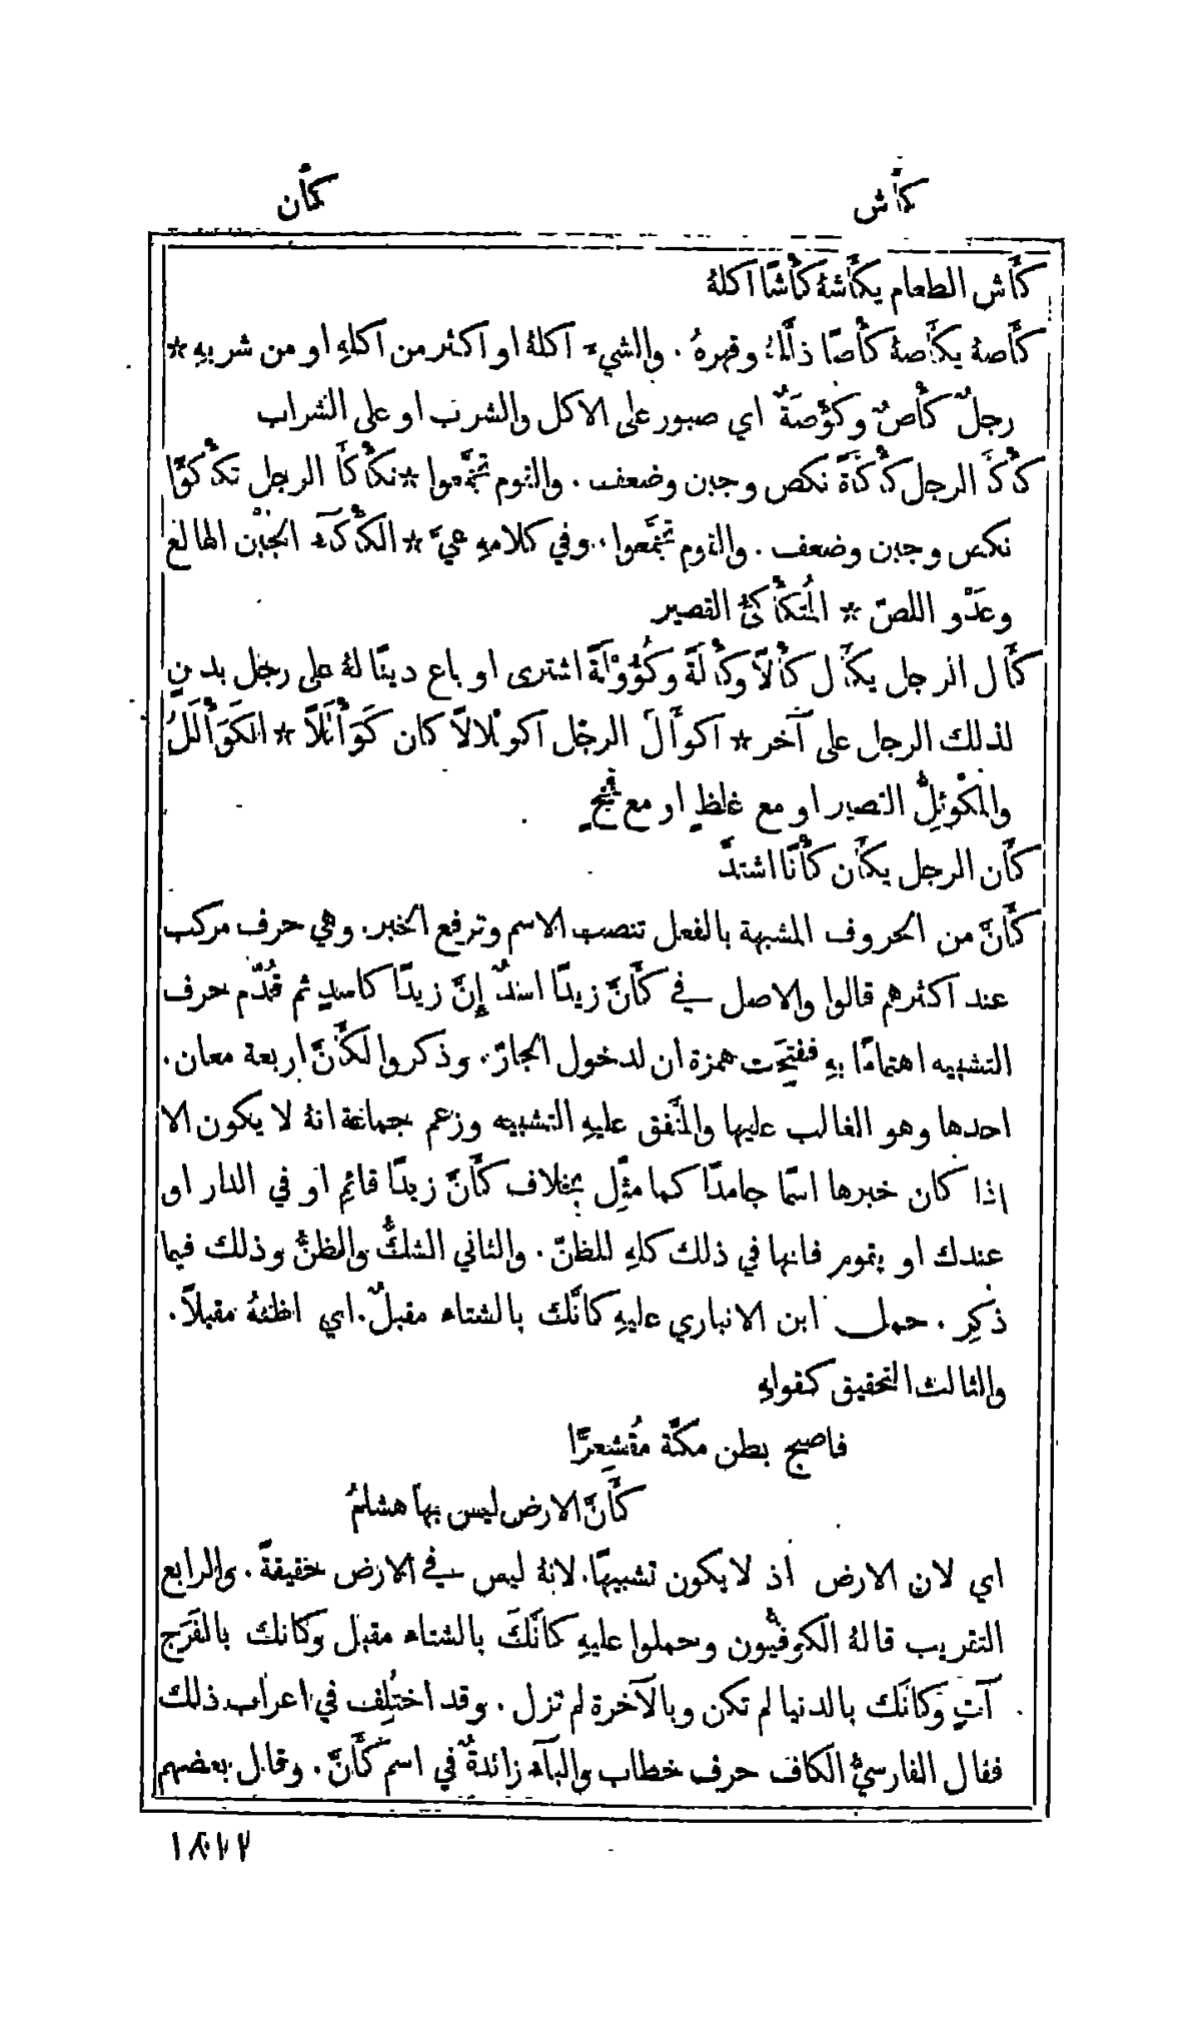 كأش
كأن
كأش الطعام يكأشهُ كأشًا اكلهُ
كأصهُ يكأصهُ كأصًا ذلَّلهُ وقهرهُ . والشيء اكلهُ او اكثر من اكلهِ او من شربهِ *
رجلٌ كأصٌ وكؤُصَةٌ اي صبور على الاكل والشرب او على الشراب
كأكأ الرجل كأكأةً نكص وجبن وضعف . والقوم تجمَّعوا * تكأكأ الرجل تكأكؤًا
نكص وجبن وضعف . والقوم تجمَّعوا . وفي كلامهِ عيَّ * الكأكآء الجُبْن الهالع
وعَدْو اللصّ * المُتكأكئ القصير
كأل الرجل يكأل كألًا وكألةً وكُؤُولَةً اشترى او باع دينًا لهُ على رجل بدين
لذلك الرجل على آخر * اكوأَلَّ الرجل اكوئلالًا كان كَوَأْلَلًا * الكَوَأْلَلُ
والمكْوَئِلُّ القصير او مع غلظٍ او مع فَحَجٍ
كأن الرجل يكأن كأنًا اشتدَّ
كأَنَّ من الحروف المشبهة بالفعل تنصب الاسم وترفع الخبر . وهي حرف مركب
عند اكثرهم قالوا والاصل في كأَنَّ زيدًا اسدٌ إِنَّ زيدًا كاسدٍ ثم قُدّم حرف
التشبيه اهتمامًا بهِ ففتِحَت همزة ان لدخول الجارّ . وذكروا لكأَنَّ اربعة معان .
احدها وهو الغالب عليها والمتَّفق عليهِ التشبيه وزعم جماعة انهُ لا يكون الا
اذا كان خبرها اسمًا جامدًا كما مثِّل بخلاف كأَنَّ زيدًا قائم او في الدار او
عندك او يقوم فانها في ذلك كلهِ للظنّ . والثاني الشكُّ والظنُّ وذلك فيما
ذكِر . حمل ابن الانباري عليهِ كانَّك بالشتاء مقبلٌ . اي اظنهُ مقبلًا .
والثالث التحقيق كقولهِ
فاصبح بطن مكَّة مُقْشَعِرًّا
كأَنَّ الارض ليس بها هشامُ
اي لان الارض اذ لا يكون تشبيهًا . لانهُ ليس في الارض حقيقةً . والرابع
التقريب قالهُ الكوفيُّون وحملوا عليهِ كانَّكَ بالشتاء مقبل وكانك بالفَرَج
آتٍ وكانَك بالدنيا لم تكن وبالآخرة لم تزل . وقد اختُلِف في اعراب ذلك
فقال الفارسيُّ الكاف حرف خطاب والبآء زائدةٌ في اسم كأَنَّ . وقال بعضهم